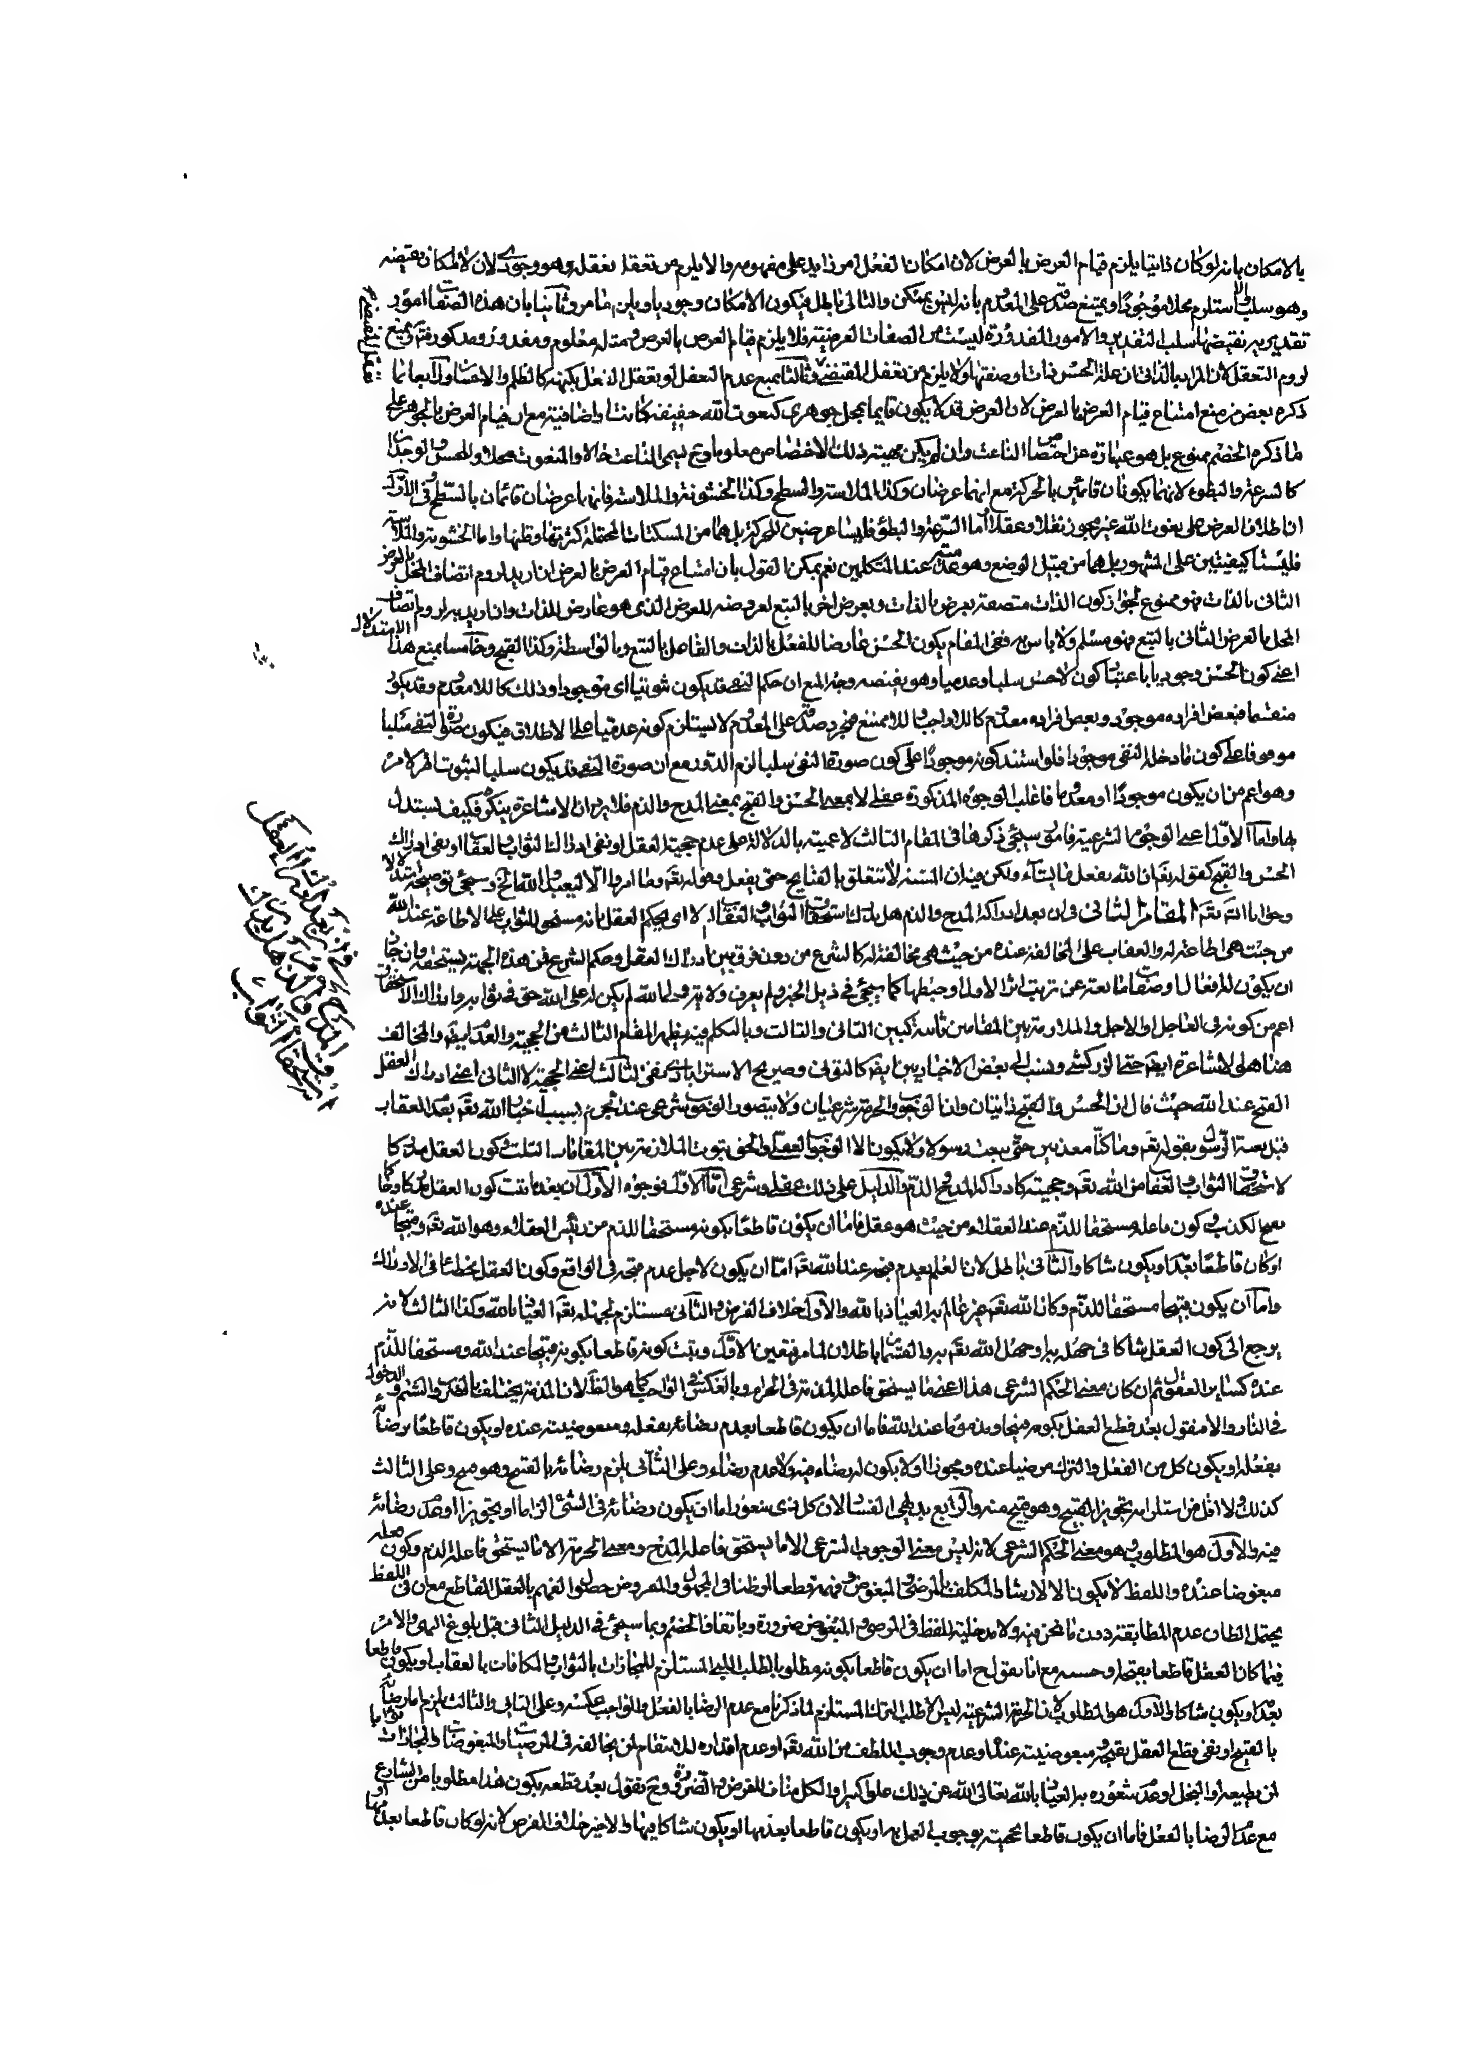 بالامكان بانه لو كان ذاتيا يلزم قيام العرض بالعرض لان امكان الفعل امر زايد على مفهومه والا يلزم من تعقله تعقله وهو وجودى لان لا امكان نقيضه
وهو سلب والا استلزم محلا موجودا ويمتنع صدقه على المعدوم بانه ليس بممكن والتالى باطل فيكون الامكان وجوديا ويلزم ما مر وثانيا بان هذه الصفات امور
تقديرية نقيضها سلب التقدير والامور المقدورة ليست من الصفات العرضية فلا يلزم قيام العرض بالعرض
لزوم التعقل لان المراد بالذاتى ان علة الحسن ذات او صفتها ولا يلزم من تعقل المقتضى وثالثا بمنع عدم التعقل لو تعقل الفعل بكنهه كالظلم والاحسان ورابعا بما
ذكره بعض من منع امتناع قيام العرض بالعرض لان العرض قد لا يكون قايما بمحل جوهرى كنعوت الله حقيقة كانت او اضافية مع ان قيام العرض بالجوهر على
ما ذكره الخصم ممنوع بل هو عبارة عن اختصاص الناعت وان لم يكن مهية ذلك الاختصاص معلوما وح يسمى الناعت حالا والمنعوت محلا
كالسرعة والبطؤ لانهما يكونان قائمين بالحركة مع انهما عرضان وكذا الملاسة والسطح وكذا الخشونة والملاسة فانهما عرضان قائمان بالسطح وفى الاول
ان اطلاق العرض على نعوت الله غير مجوز نقلا وعقلا اما السرعة والبطؤ فليسا عرضين للحركة بل هما من السكنات المتخللة كثرتها وقلتها واما الخشونة والملاسة
فليستا كيفيتين على المشهور بل هما من قبيل الوضع وهو عدمى عند المتكلمين نعم يمكن القول بان امتناع قيام العرض بالعرض ان اريد لزوم اتصاف المحل بالعرض
الثانى بالذات فهو ممنوع لجواز كون الذات متصفة بعرض بالذات وبعرض اخر بالتبع لعروضه للعرض الذى هو عارض للذات وان اريد به لزوم اتصاف
المحل بالعرض الثانى بالتبع فهو مسلم ولا باس به ففى المقام يكون الحسن عارضا للفعل بالذات والفاعل بالتبع وبالواسطة وكذا القبح وخامسا بمنع هذا الاستدلال
اعنى كون الحسن وجوديا باعتبار كون لا حسن سلبا وعدميا وهو نقيضه وجه المنع ان حكم النفى قد يكون ثبوتيا اى موجودا وذلك كاللا معدوم وقد يكون
منقسما فبعض افراده موجود وبعض افراده معدوم كاللا واجب واللا ممتنع فمجرد صدقه على المعدوم لا يستلزم كونه عدميا على الاطلاق فيكون صورة النفى سلبا
موقوفا على كون ما دخله النفى موجودا فلو استند كونه موجودا على كون صورة النفى سلبا لزم الدور مع ان صورة النفى قد يكون سلبا لثبوت امر لامر
وهو اعم من ان يكون موجودا او معدوما فاغلب الوجوه المذكورة عقلى لا بمعنى الحسن والقبح بمعنى المدح والذم فلا يرد ان الاشاعرة ينكره فكيف يستدل
بها واما الاول اعنى الوجوه الشرعية فامور سيجئ ذكرها فى المقام الثالث لاعميته بالدلالة على عدم حجية العقل او نفى ادراك الثواب والعقاب او نفى ادراك
الحسن والقبح كقوله تعالى ان الله يفعل ما يشاء ولكن فيه ان المشية لا تتعلق بالقبايح حتى يفعل وقوله تعالى وما امروا الا ليعبدوا الله الخ وسيجئ توضيحه
وجوابه انشاء الله تعالى المقام الثانى فى ان بعد ادراك المدح والذم هل يدرك استحقاق الثواب والعقاب ام لا اى يحكم العقل بانه مستحق للثواب على الاطاعة عند الله
من حيث هى اطاعة له والعقاب على المخالفة عنده من حيث هى مخالفة له كالشرع من دون فرق بين ادراك العقل وحكم الشرع من هذه الجهة
ان يكون
اعم من كونه فى العاجل او الاجل والملازمة بين المقامين ثابتة كبين الثانى والثالث وبالتكلم فيه يظهر المقام الثالث من الحجية والعدم ايضا والمخالف
هنا هى الاشاعرة ايضا حتى الزركشى ونسب الى بعض الاخباريين ايضا كالتونى وصريح الاسترابادى نفى الثالث اعنى الحجية لا الثانى اعنى ادراك العقل
القبح عند الله حيث قال ان الحسن والقبح ذاتيان وان الوجوب والحرمة شرعيان ولا يتصور الوجوب شرعى عند المجرم بسبب اخبار الله تعالى بعدم العقاب
قبل بعثة الرسول بقوله تعالى وما كنا معذبين حتى نبعث رسولا ولا يكون الا الوجوب العقلى والحق ثبوت الملازمة بين المقامات الثلث وكون العقل مدركا
لاستحقاق الثواب والعقاب من الله تعالى وحجيته كادراك المدح والذم والدليل على ذلك عقلى وشرعى اما الاول فوجوه الاول ان بعد ما ثبت كون العقل مدركا وحاكما
بقبح الكذب وكون فاعله مستحقا للذم عند العقلاء من حيث هو عقل فاما ان يكون قاطعا بكونه مستحقا للذم من رئيس العقلاء وهو الله تعالى وقبيحا عنده
او كان قاطعا بعدمه او يكون شاكا والثانى باطل لان العلم بعدم قبحه عند الله تعالى اما ان يكون لاجل عدم قبحه فى الواقع وكون العقل مخطئا فى الادراك
واما ان يكون قبيحا مستحقا للذم وكان الله تعالى غير عالم به العياذ بالله والاول خلاف الفرض والثانى مستلزم لجهله تعالى العياذ بالله وكذا الثالث لانه
يرجع الى كون العقل شاكا فى جهله به او جهل الله تعالى به والقسمان باطلان لما مر فتعين الاول وثبت كونه قاطعا بكونه قبيحا عند الله ومستحقا للذم
عنده كساير العقول ثم ان كان معنى الحكم الشرعى هذا اعنى ما يستحق فاعله المذمة فى الحرام وبالعكس فى الواجب كما هو الحق
فى النار والا فنقول بعد قطع العقل بكونه قبيحا ومذموما عند الله فاما ان يكون قاطعا بعدم رضائه بفعله ومبغوضيته عنده او يكون قاطعا برضائه
بفعله او يكون كل من الفعل والترك مرضيا عنده ومجوزا او لا يكون له رضاء فيه ولا عدم رضاء وعلى الثانى يلزم رضائه بالقبح وهو قبيح وعلى الثالث
كذلك ولا اقل من استلزامه تجويز القبيح وهو قبيح منه والرابع بديهى الفساد لان كل ذى شعور اما ان يكون رضائه فى الشئ الزاما او تجويزا او عدم رضائه
فيه والاول هو المطلوب وهو معنى الحكم الشرعى لانه ليس معنى الوجوب الشرعى الا ما يستحق فاعله المدح ومعنى الحرمة الا ما يستحق فاعله الذم وكون
مبغوضا عنده واللفظ لا يكون الا لارشاد المكلف بالمرضى والمبغوض وفهمه قطعا او ظنا فى المجهول والمفروض حصول الفهم بالعقل القاطع مع ان فى اللفظ
يحتمل الظان عدم المطابقة دون ما نحن فيه ولا مدخلية للفظ فى المرضى والمبغوض ضرورة وباتفاق الخصم وبما سيجئ فى الدليل الثانى قبل بلوغ النهى والامر
فيما كان العقل قاطعا بقبحه وحسنه مع انا نقول ح اما ان يكون قاطعا بكونه مطلوبا بالطلب اللبى المستلزم للمجازات بالثواب والمكافات بالعقاب او يكون قاطعا
بعدمه او يكون شاكا والاول هو المطلوب لان الحرمة الشرعية ليس الا طلب الترك المستلزم لما ذكرنا مع عدم الرضا بالفعل والواجب عكسه وعلى الثانى والثالث يلزم اما رضائه
بالقبح او نفى قطع العقل بقبحه ومبغوضيته عنده او عدم وجوب اللطف من الله تعالى او عدم اقتداره للانتقام لمن يخالفه فى المرضيات والمبغوضات والمجازات
لمن يطيعه او البخل او عدم شعوره به العياذ بالله تعالى الله عن ذلك علوا كبيرا والكل مناف للفرض والضرورة وح نقول بعد قطعه بكون هذا مطلوبا من الشارع
مع عدم الرضا بالفعل فاما ان يكون قاطعا بحجيته بوجوب العمل به او يكون قاطعا بعدمها او يكون شاكا فيها والاخير خلاف الفرض لانه لو كان قاطعا بعدمها او
تعقل المقتضى
فى ان بعد ادراك العقل
المدح والذم هل يدرك
استحقاق الثواب